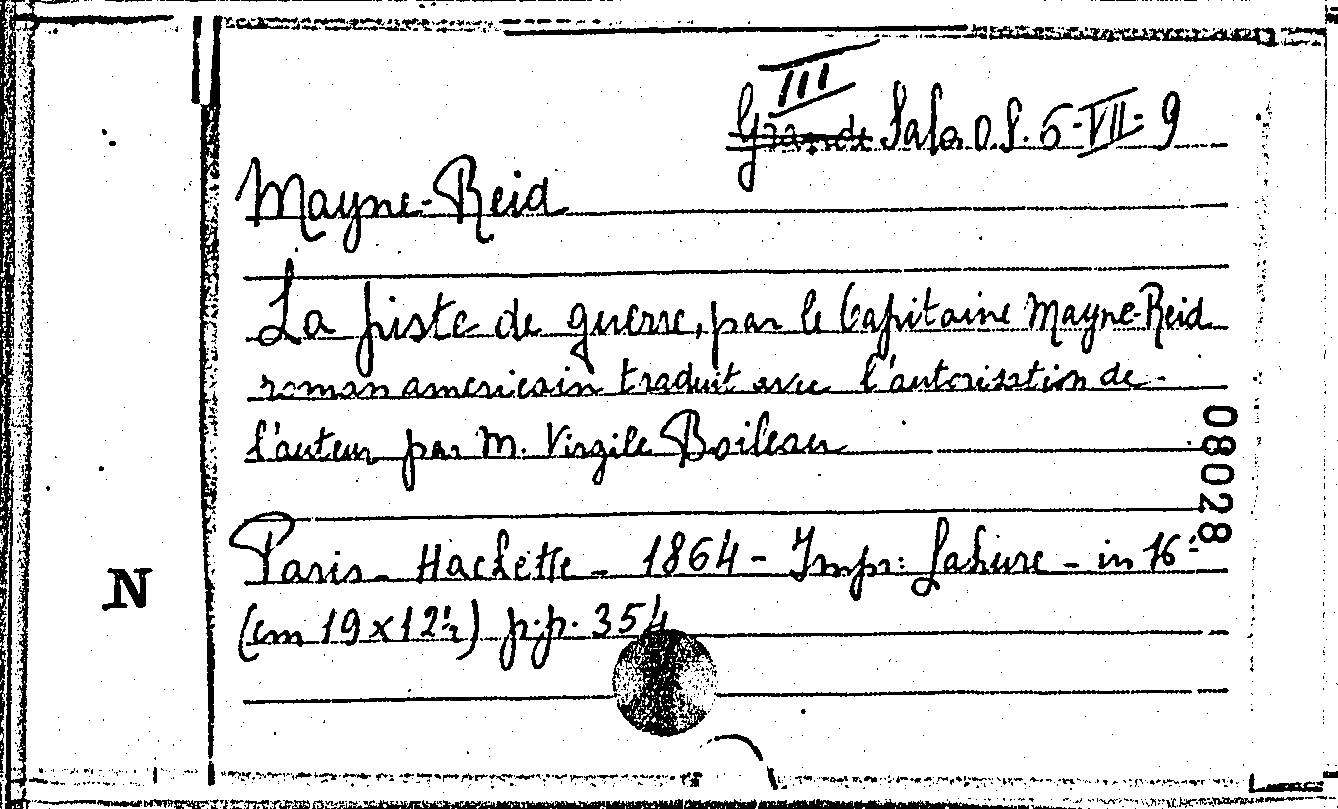 III
Grande Sala O.S. 5-VII-9
Mayne-Reid
La piste de guerre, par le Capitaine Mayne-Reid
roman americain traduit avec l'autorisation de
l'auteur par M. Virgile Boileau
08028
Paris - Hachette - 1864 - Impr: Lahure - in 16º
N
(cm 19x12½) p.p. 354